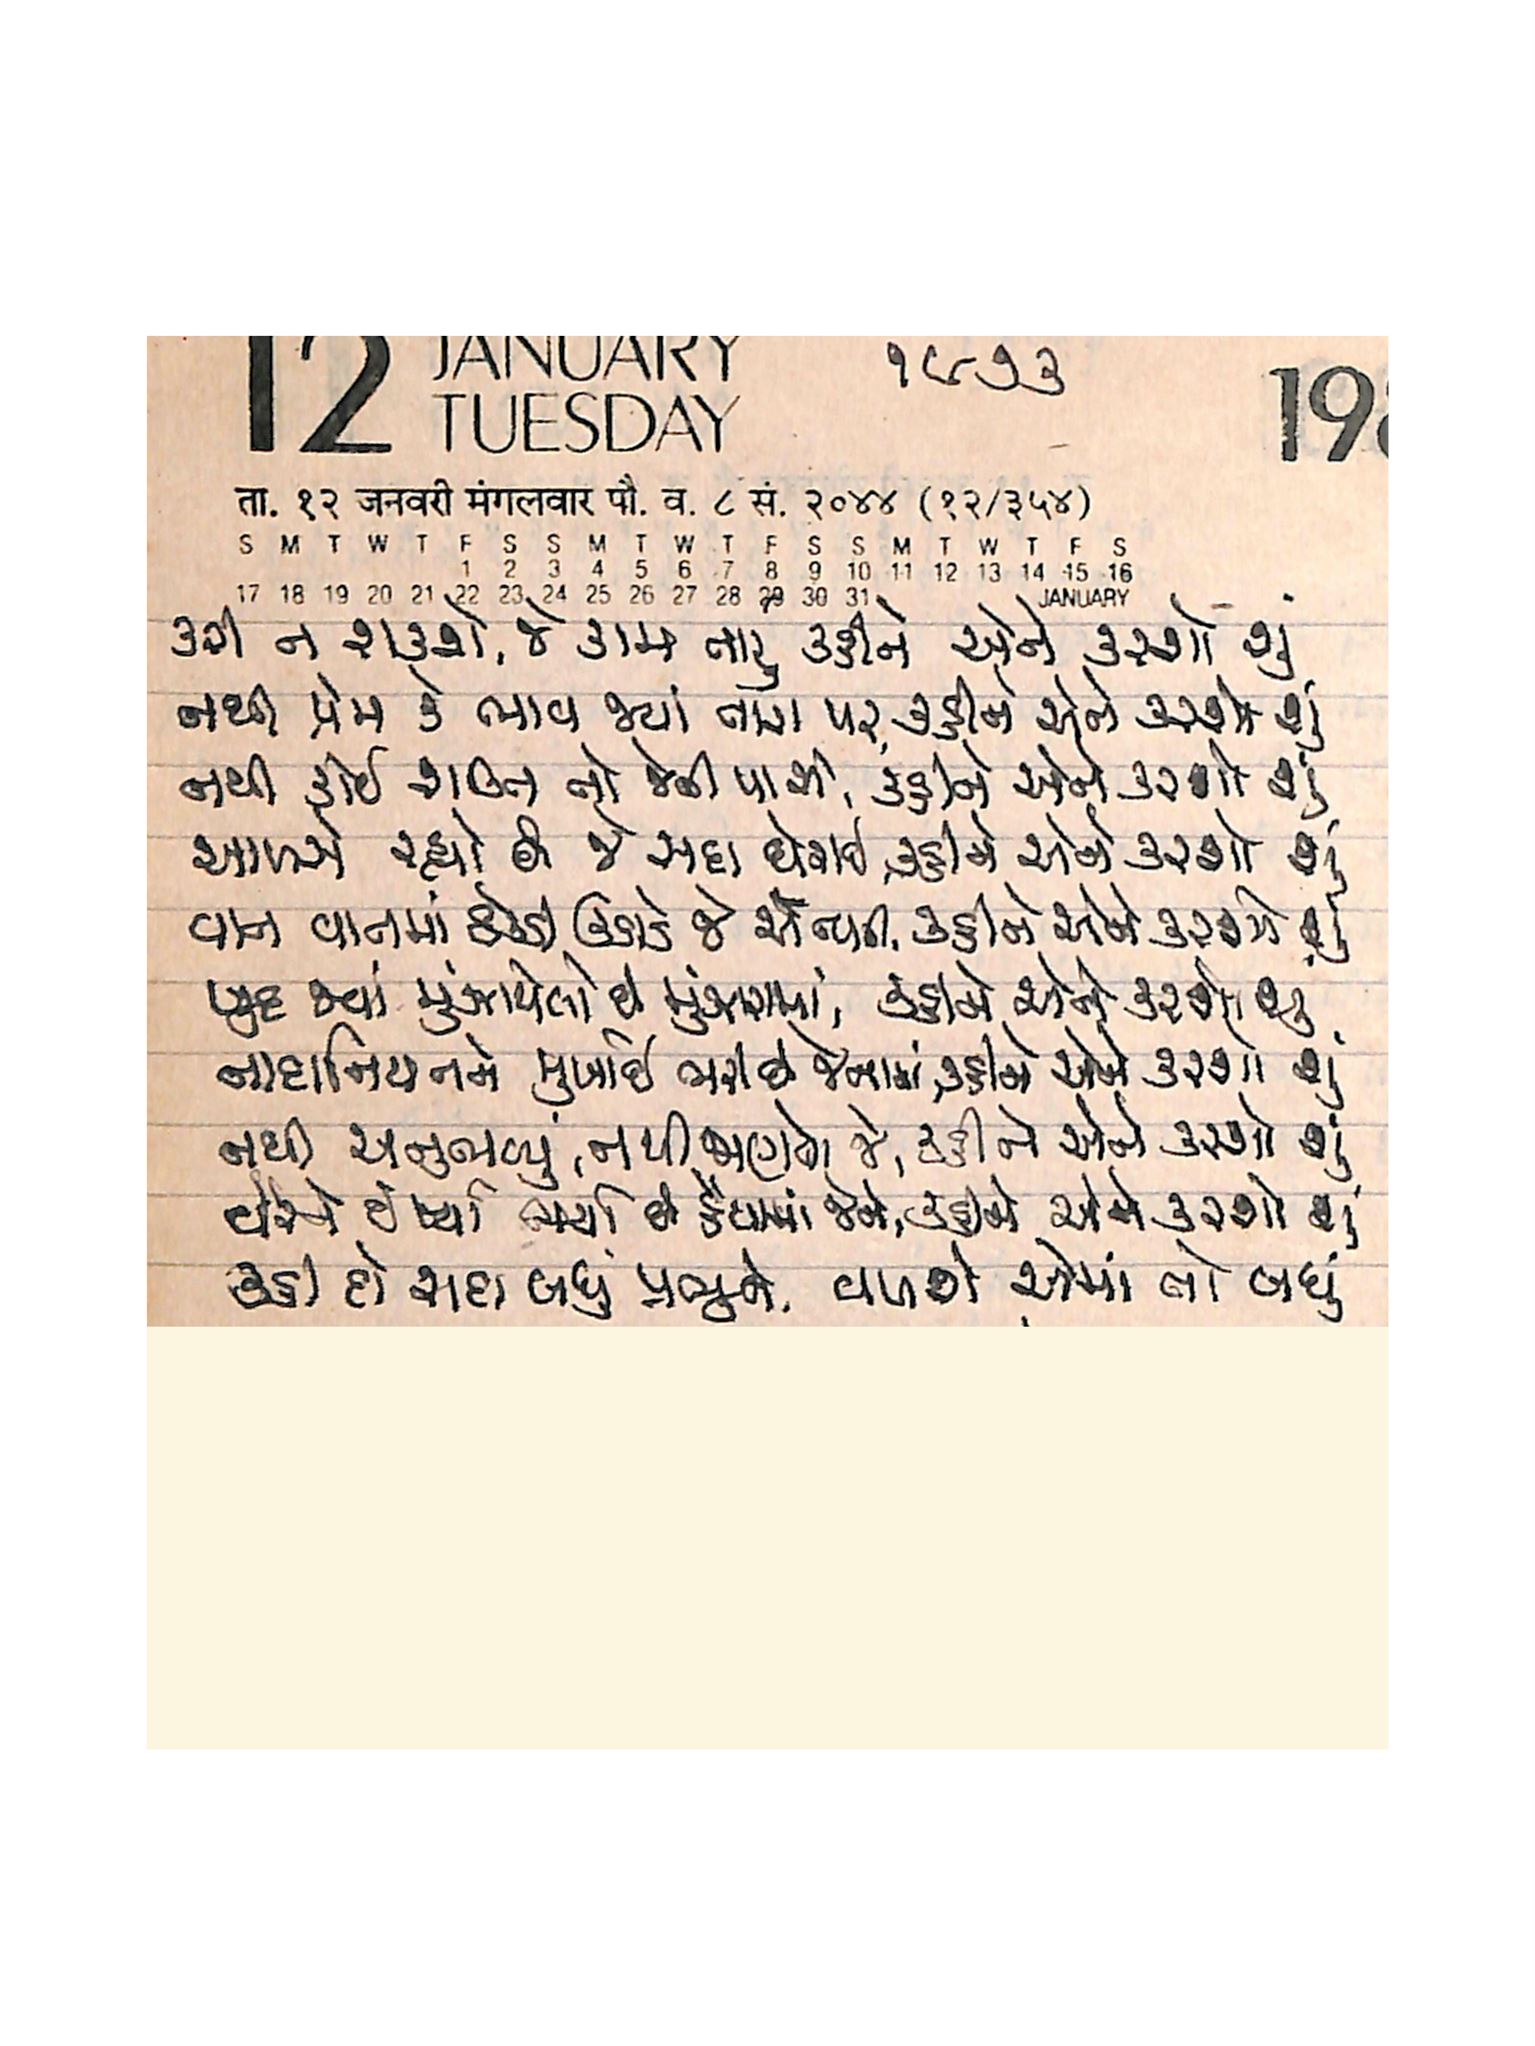 12 JANUARY
TUESDAY
૧૯૭૩
198
ता. १२ जनवरी मंगलवार पौ. व. ८ सं. २०४४ (१२/३५४)
S M T W T F S S M T W T F S S M T W T F S
1 2 3 4 5 6 7 8 9 10 11 12 13 14 15 16
17 18 19 20 21 22 23 24 25 26 27 28 29 30 31 JANUARY
કરી ન શકશે, જે કામ તારુ કહીને એને કરશો શું
નથી પ્રેમ કે ભાવ જ્યાં તારા પર, કહીને એને કરશો શું
નથી કોઈ શક્તિ તો જેની પાસે, કહીને એને કરશો શું
આળસે રહ્યો છે જે સદા ઘેરાઈ, કહીને એને કરશો શું
વાત વાતમાં ઠેકડી ઉડાડે જે અન્યની, કહીને એને કરશો શું
ખુદ જ્યાં મુંઝાયેલો છે મુંઝારામાં, કહીને એને કરશો શું
નાદાનિયતને મુર્ખાઈ ભરી છે જેનામાં, કહીને એને કરશો શું
નથી અનુભવ્યું, નથી જાણતો જે, કહીને એને કરશો શું
વેરને ઈર્ષ્યા ભર્યા છે હૈયામાં જેને, કહીને એને કરશો શું
કહી દો સદા બધું પ્રભુને, વળશે એમાં તો બધું